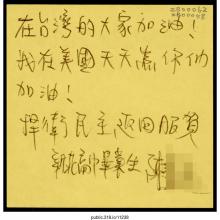 在台灣的大家加油!
我在美國天天為你们
加油!
捍衛民主退回服貿
新北高中畢業生 陳
public.318.io/11239